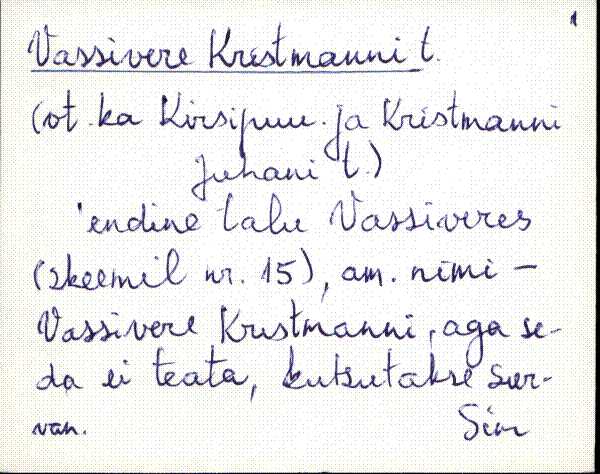 1
Vassivere Kristmanni t.
(vt. ka Kirsipuu. ja Kristmanni
Juhani t.)
'endine talu Vassiveres
(skeemil nr. 15), am. nimi –
Vassivere Kristmanni, aga se-
da ei teata, kutsutakse
van.